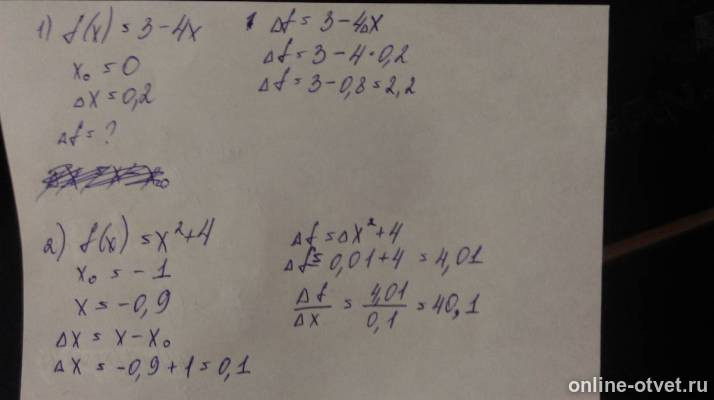 1) f(x) = 3 - 4x
x₀ = 0
Δx = 0,2
Δf = ?
Δf = 3 - 4Δx
Δf = 3 - 4 · 0,2
Δf = 3 - 0,8 = 2,2
2) f(x) = x² + 4
x₀ = -1
x = -0,9
Δx = x - x₀
Δx = -0,9 + 1 = 0,1
Δf = Δx² + 4
Δf = 0,01 + 4 = 4,01
Δf/Δx = 4,01/0,1 = 40,1
online-otvet.ru